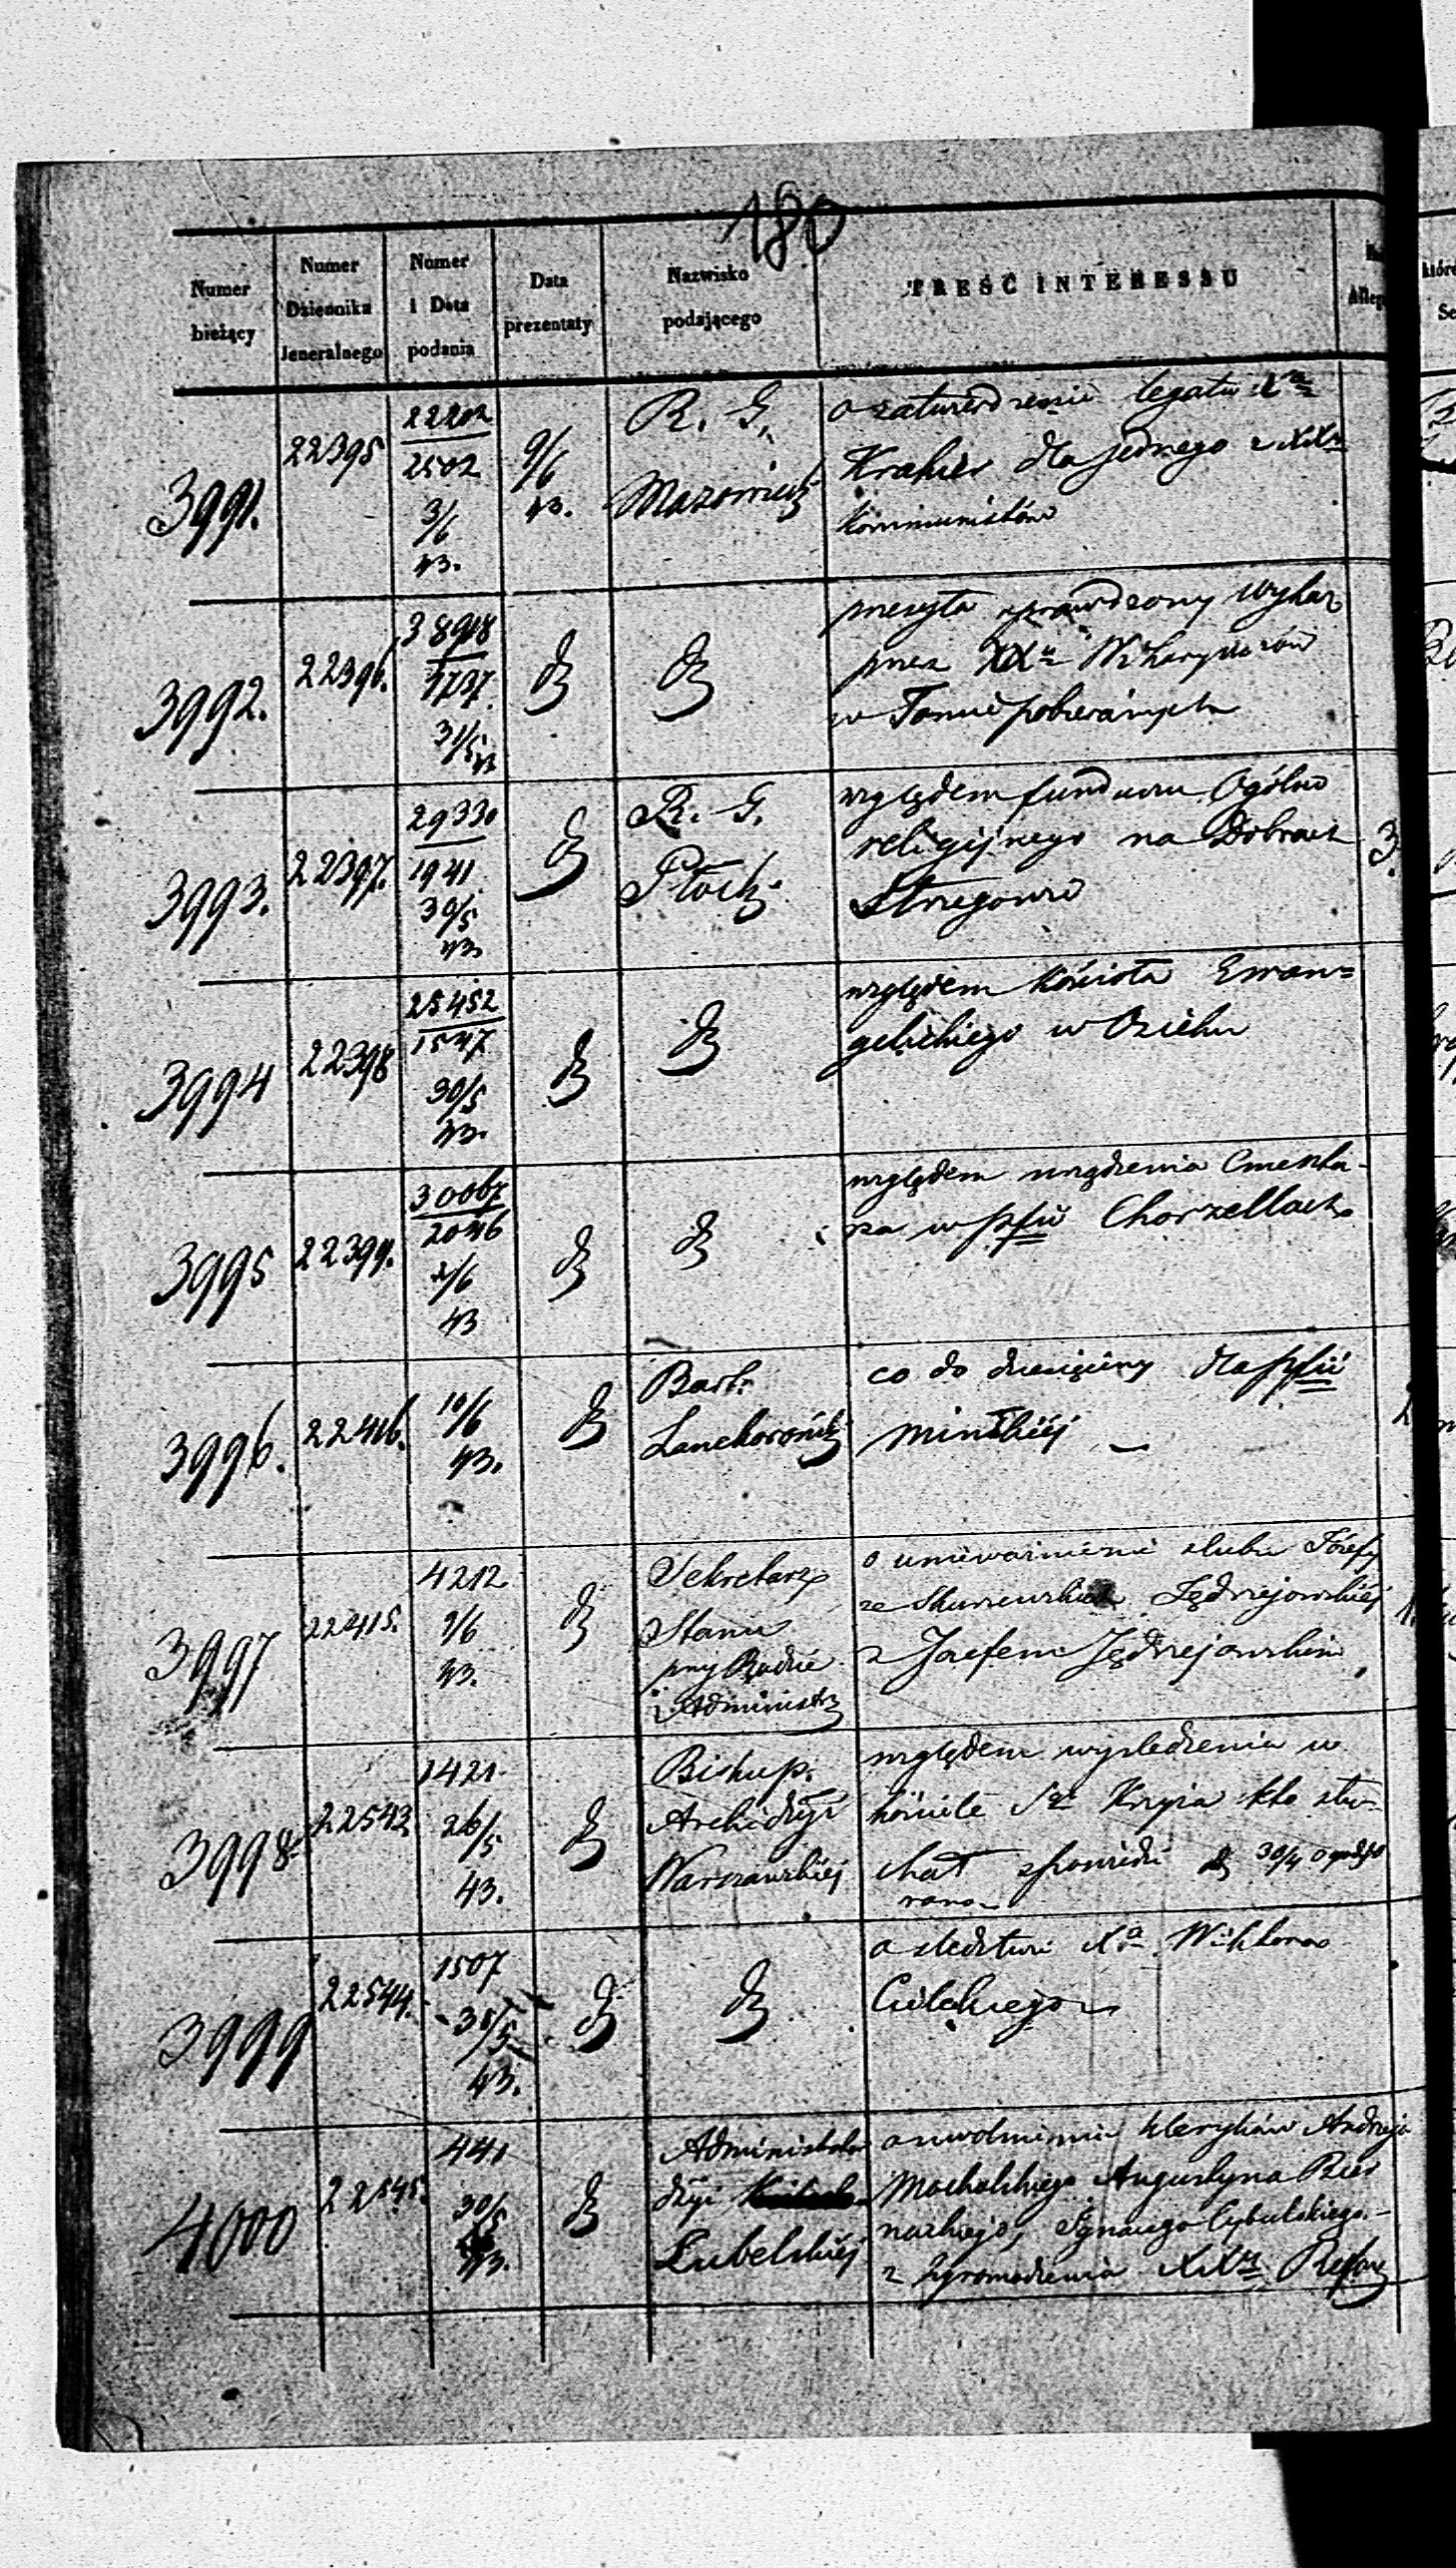 180
Numer bieżący
Numer Dziennika Jeneralnego
Numer i Data podania
Data prezentaty
Nazwisko podającego
TREŚĆ INTERESSU
3991.
22395
22202
2502
3/6
43.
9/6
43.
R. G.
Mazowiecki
o zatwierdzenie legatu Xa
dla jednego z XXy
kommunistów
3992.
22396.
38918
31/5 43
db
db
przesyła sprawdzony wykaz
przez XXy Wikaryuszów
w pobieranych
3993.
22397.
29330
1941
30/5
43
db
R. G.
Płock.
względem funduszu Ogólno
religijnego na Dobrach
Strzegowo
3994
22398
25452
1547
30/5
43.
db
db
względem kościoła Ewan=
gelickiego w Osieku
3995
22399.
30067
2046
2/6
43
db
db
względem urządzenia Cmenta-
rza w pfii Chorzellach
3996.
22416.
10/6
43.
db
Bart.
Lanckoroński
co do dziesięciny dla pfii
mińskiéj
3997
22415.
4212
9/6
43.
db
Sekretarz
Stanu
przy Radzie
Administr
o unieważnienie ślubu Józefy
ze Jędrzejowskiéj
z Józefem Jędrzejowskim
3998
22543
1421
26/5
43.
db
Biskup.
Archidyi
Warszawskiéj
względem wyśledzenia w
kościele Sgo Krzyża kto słu-
chał spowiedzi d 30/4 o godz
rano
3999
22544.
1507
43.
db
db
o śledztwie Xa Wiktora
4000
22545.
441
30/5
43.
db
Administrator
dyi
Lubelskiéj
o uwolnienie kleryków Andrzeja
Augustyna
Ignacego Cybulskiego
z Zgromadzenia XXy Reform